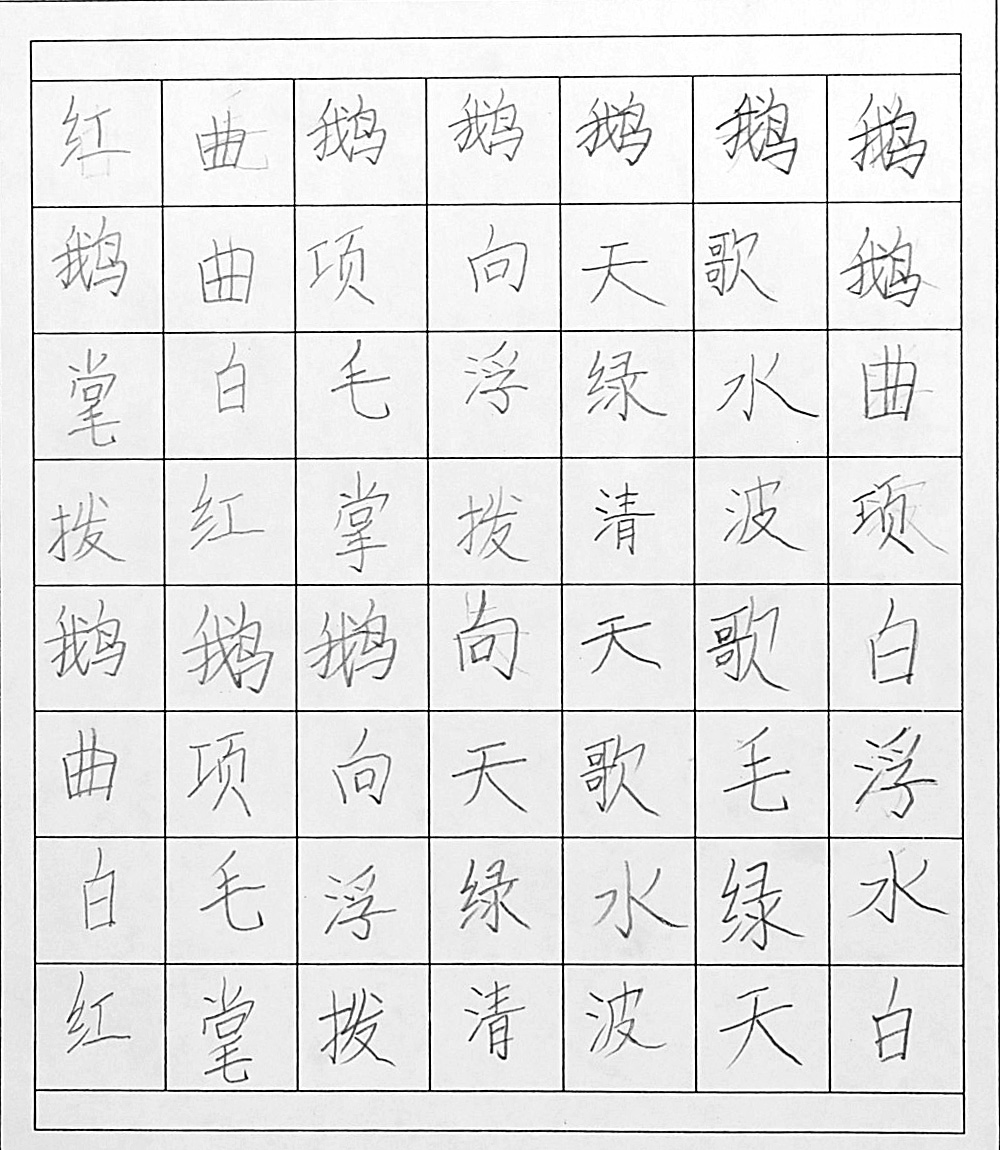 红曲鹅鹅鹅鹅鹅
鹅曲项向天歌鹅
毛白毛浮绿水曲
拨红掌拨清波项
鹅鹅鹅向天歌白
曲项向天歌毛浮
白毛浮绿水绿水
红拨清波天白